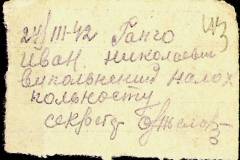 27/III-42 Ганго
Иван Николаевич
выполнении налох
польносту
секрет